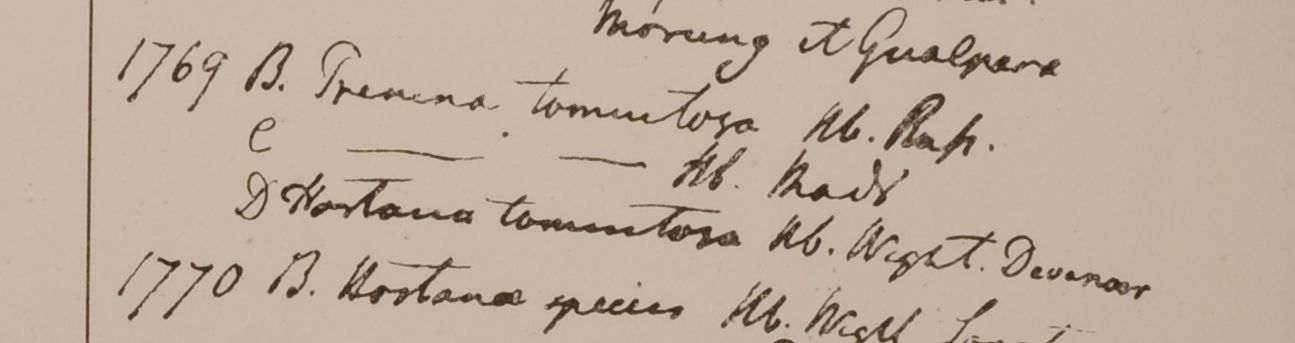 Morung et Gualpara
1769 B. Premna tomentosa Hb. Rup.
C — — Hb. Madr
D Hostana tomentosa Hb. Wight. Devanoor
1770 B. Hostanæ species Hb. Wight